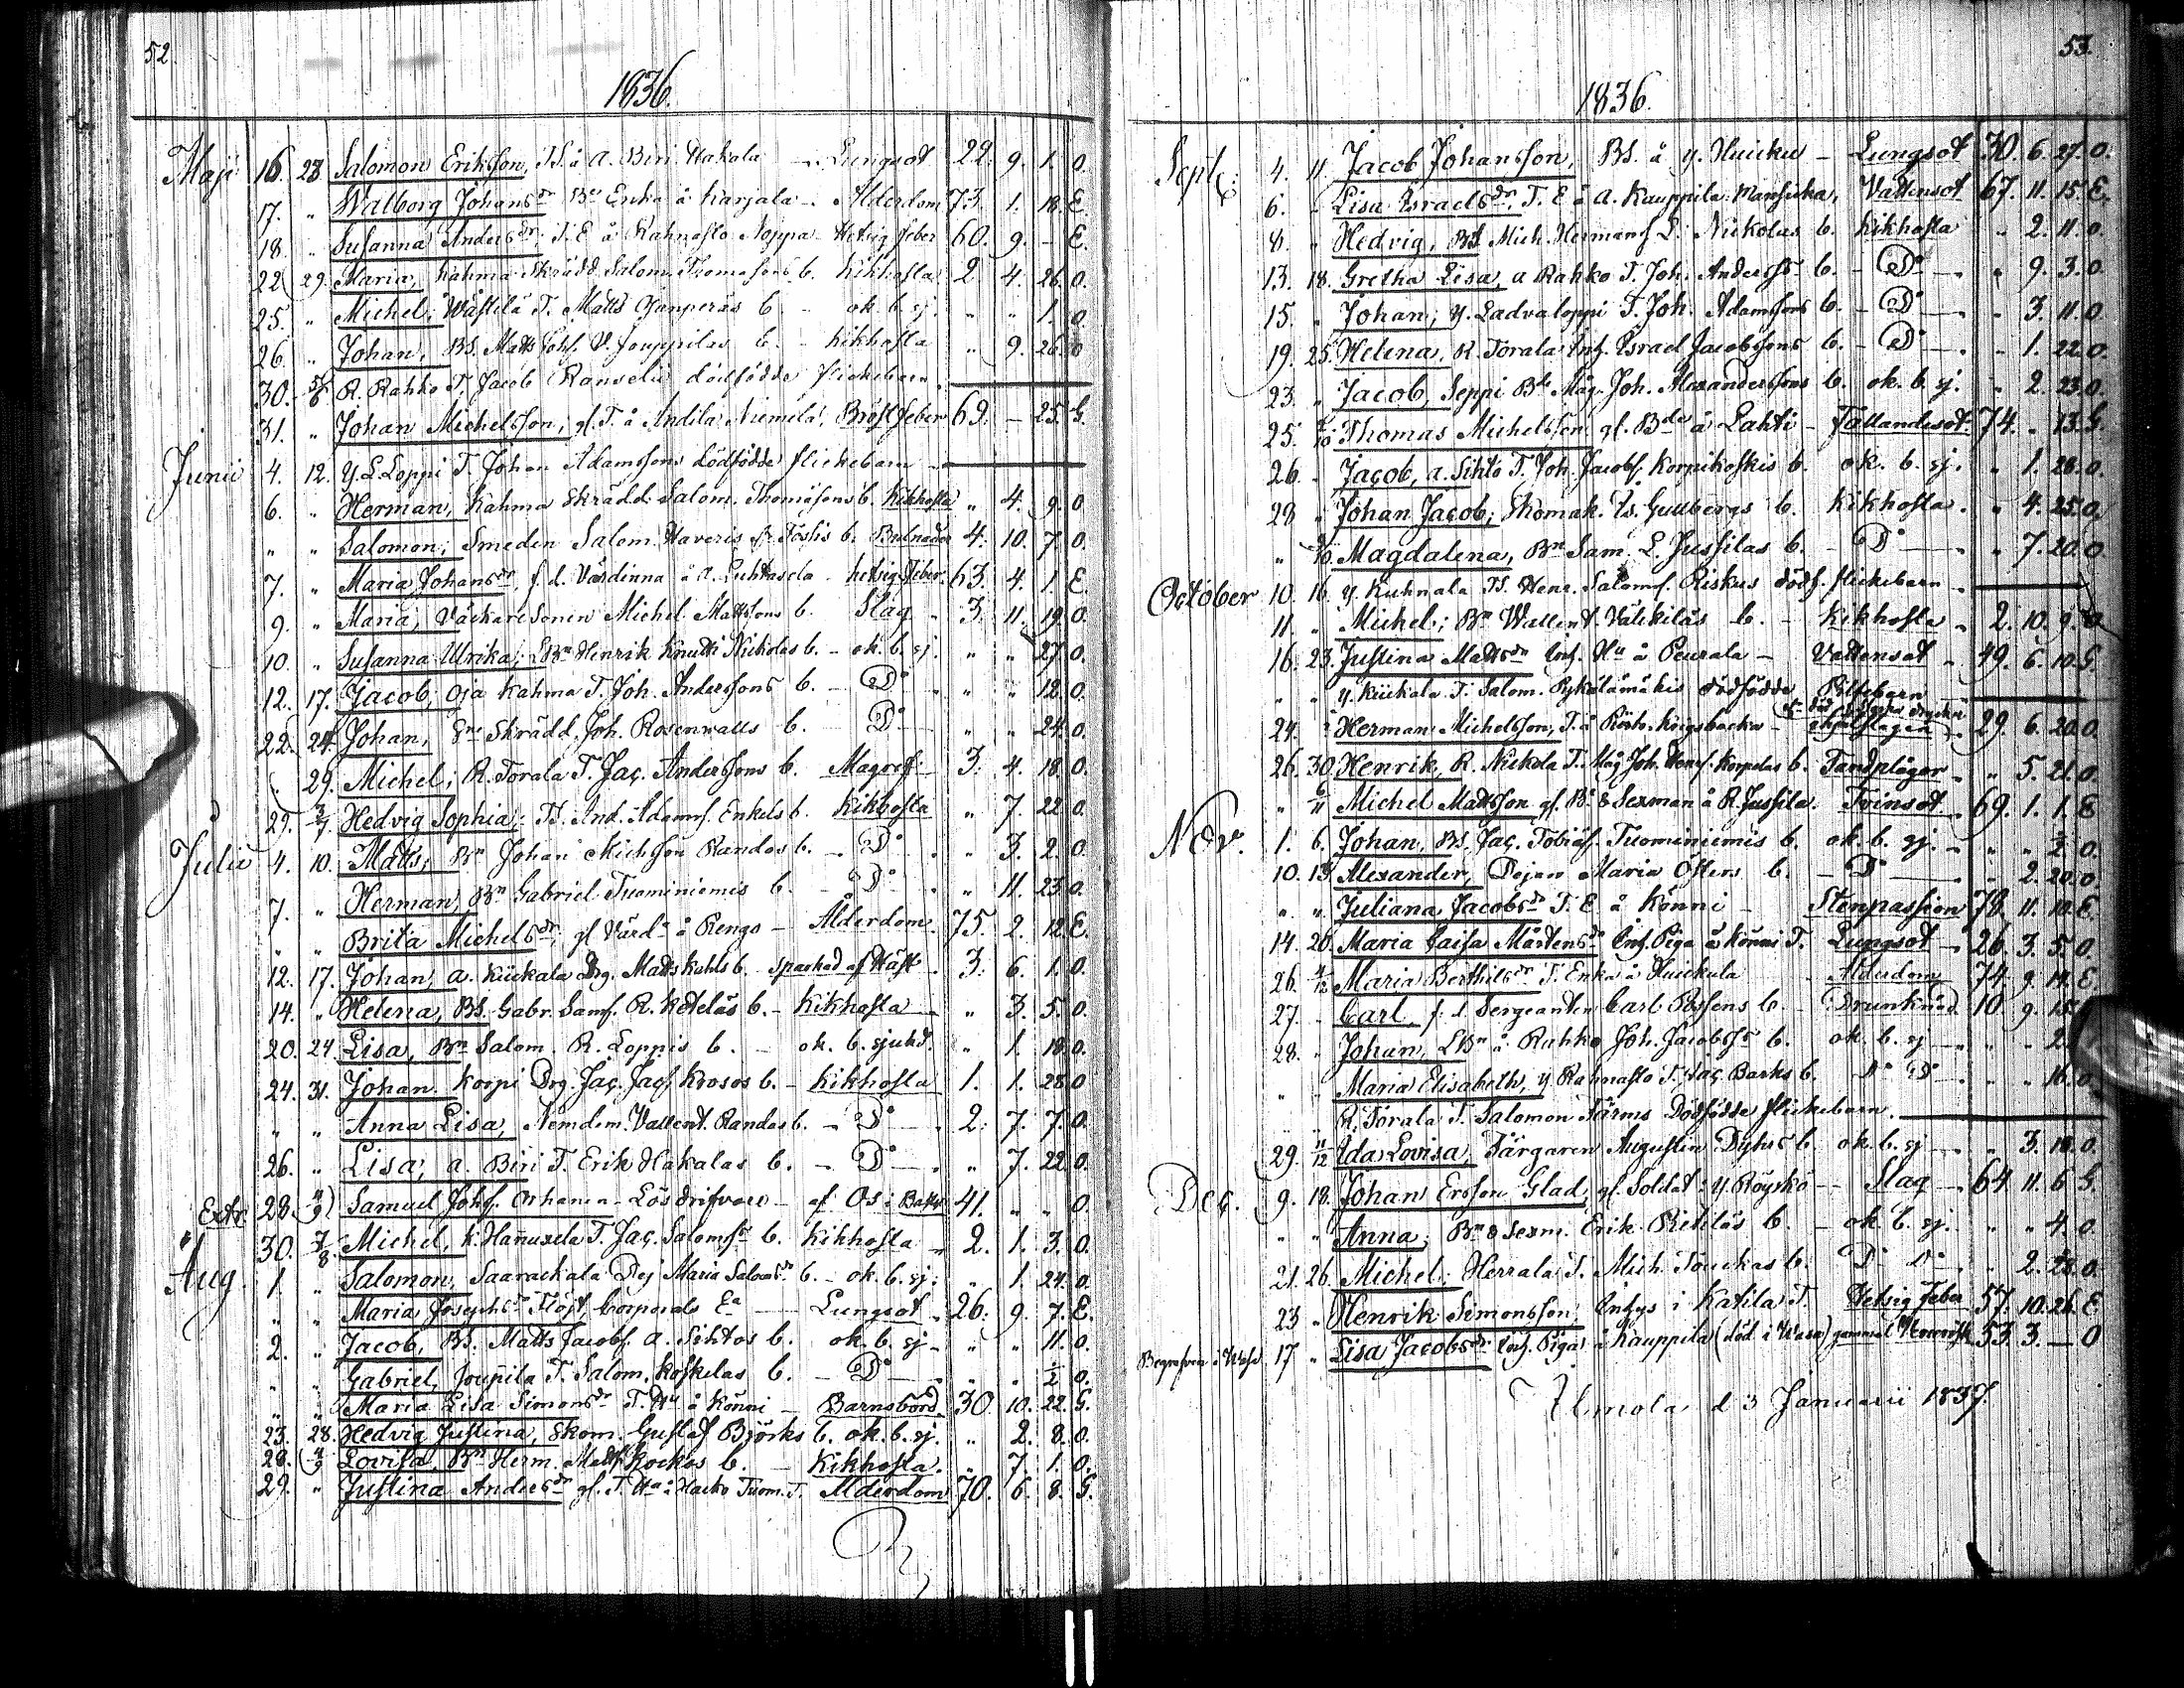 52.
1836.
Maji 16. 23 Salomon Eriksson, TS. å A. Biri Hakola - Lungsot 22. 9. 1. O.
17. " Walborg Johansdr Bn Enka å Karjala - Ålderdom 73. 1. 18. E.
18. " Susanna Andersdr, T. E å Rahnasto Noppa - Hetsig feber 60. 9. - E.
22. 29. Maria, Kahma Skrädd. Salom. Thomasons b. Kikhosta 2. 4. 26. O.
25. " Michel, Wästilä T. Matts Ojanperäs b. ok. b. sj. " " 1. O.
26. " Johan, BS. Matts Johss. V. Jouppilas b. - Kikhosta " 9. 26. O
30. 5/6 R. Rahko T. Jacob Ranselii dödfödde flickebarn.
31. " Johan Michelsson, gl. T. å Andila Niemelä, Bröstfeber 69. - 25. G.
Junii 4. 12. Y. L. Loppi T. Johan Adamssons dödfödde flickebarn
6. " Herman, Kahma Skrädd. Salom. Thomasons b. Kikhosta " 4. 9. O
" " Salomon, Smeden Salom. Haveris b. Bulnader 4. 10. 7. O.
7. " Maria Johansdr, f. d. Värdinna å A. Luhtasela - hetsig feber. 63. 4. 1. E.
9. " Maria, Väckare Sonen Michel Mattssons b. Slag " 3. 11. 19. O.
10. " Susanna Ulrika, LBn Henrik Knutti Nickolas b. - ok. b. sj. " " 27. O.
12. 17. Jacob, Oja Kahma T. Joh. Anderssons b. - Do " " 12. O.
22. 24. Johan, Skrädd. Joh. Rosenwalls b. - Do " " 24. O.
" 29. Michel, R. Torala T. Jac. Anderssons b. Magref 3. 4. 18. O.
29. 3/7. Hedvig Sophia, TS. And. Adamss. Enkels b. Kikhosta " 7. 22. O.
Julii 4. 10. Matts, Bn Johan Michsson Randos b. - Do " 3. 2. O.
7. " Herman, Bn Gabriel Tuominiemis b. - Do " 11. 23. O.
" " Brita Michelsdr, gl Värda å Rengo - Ålderdom. 75. 2. 12. E.
12. 17. Johan, A. Kückala Drg. Matts Kahls b. - sparkad af Häst 3. 6. 1. O.
14. " Helena, BS. Gabr. Sams. R. Keteläs b. - Kikhosta " 3. 5. O.
20. 24. Lisa, Bn Salom. R. Loppis b. - ok. b. sjukd. " 1. 18. O.
24. 31. Johan, Korpi Drg. Jac. Jacss Krosos b. - Kikhosta 1. 1. 28. O
" " Anna Lisa, Nemdem. Vallent. Randos b. - Do 2. 7. 7. O.
26. " Lisa, A. Biri T. Erik Hakalas b. - Do " 7. 22. O.
Extr. 28. Samuel Johss. Orhanen - Lösdrifvare - 41. " " O
" 30. 7/8. Michel, K. Hannuxela T. Jac. Salomss b. Kikhosta 2. 1. 3. O.
Aug. 1. " Salomon, Saarackala Dej Maria Salomsdr b. - ok. b. sj. " 1. 24. O.
" " Maria Josephsdr Flöjt, Corporals Ea - Lungsot 26. 9. 7. E.
2. " Jacob, BS. Matts Jacobss. A. Sihtos b. ok. b. sj " " 11. O.
" " Gabriel, Joupila T. Salom. Koskelas b. - Do " " 1/2 O.
" " Maria Lisa Simonsdr T. Hu å Könni - Barnsbörd 30. 10. 22. G.
23. 28. Hedvig Justina, Skom. Gustaf Björks b. ok. b. sj. " 2. 8. O.
28. 4/9 Lovisa, Bn Herm. Matss Kockos b. - Kikhosta. " 7. 1. O.
29. " Justina Andersdr gl. T. Ha å Harko Tuom. T. Ålderdom 70. 6. 8. G.
53.
1836.
Sept. 4. 11. Jacob Johansson, BS. å Y. Huicku - Lungsot 30. 6. 27. O.
6. - Lisa Israelsdr, T. E å A. Kauppila Mansicka, Vattensot 67. 11. 15. E.
8. " Hedvig, BS Mich. Hermanss L. Nickolas b. Kikhosta " 2. 11. O.
13. 18. Gretha Lisa, A Rahko T. Joh. Anderss b. - Do " 9. 3. O.
15. " Johan, Y. Ladvaloppi T. Joh. Adamssons b. - Do " 3. 11. O.
19. 25. Helena, R. Torala Inh. Israel Jacobssons b. - Do " 1. 22. O.
23. " Jacob, Seppi Bds Måg Joh. Alexanderssons b. ok. b. sj. " 2. 23. O.
25. 2/10 Thomas Michelsson gl. Bde å Lahti - Fallandesot. 74. " 13. G.
26. - Jacob, A. Sihto T. Joh. Jacobss. Korpikoskis b. ok. b. sj. " 1. 28. O.
28 " Johan Jacob, Skomak. Is. Gullbergs b. Kikhosta. " 4. 25. O.
" 9/10. Magdalena, Bn Sam. L. Jussilas b. - Do " 7. 20. O
October 10. 16. Y. Kuhnala TS. Henr. Salomss. Riskus dödf. flickebarn
11 " Michel, Bn Wallent. Välikiläs b. - Kikhosta 2. 10. 9. O
16. 23. Justina Mattsdr Inh. Hu å Peurala - Vattensot 49. 6. 10. G.
" " Y. Kückala T. Salom. Pykälämäkis dödfödde Piltebarn
24. " Herman Michelsson, T. å Röyh. Kriigsbacka - ihjälslagen 29. 6. 20. O.
26. 30. Henrik, R. Nickola T. Måg Joh. Henss. Korpelas b. Tandplågor " 5. 21. O.
" 6/11 Michel Mattsson gl. Bn & Sexman å R. Jussila. Tvinsot 69. 1. 1. E
Nov. 1. 6. Johan, BS. Jac. Tobiass. Tuominiemis b. ok. b. sj. " " 1/2. O.
10. 13 Alexander, Pejan Maria Östers b. - Do " 2. 20. O
" " Juliana Jacobsdr T. E å Könni - Stenpassion 78. 11. 10. E.
14. 20. Maria Caisa Mårtensdr Inh. Piga å Könni T. Lungsot 26. 3. 5. O.
26. 4/12 Maria Berthilsdr T. Enka å Huickula - Ålderdom 74. 9. 14. E.
27. - Carl, f. d. Sergeanten Carl Possens b. - Drunknad 10. 9. 15.
28. " Johan, LBn å Rahko Joh. Jacobss b. ok. b. sj " " 2.
" Maria Elisabeth, Y Rahnasto T. Jac. Barks b. Do Do " " 16. O.
" R. Torala T. Salomon Tärms Dödfödde flickebarn.
29. 11/12 Ida Lovisa, Färgaren Augustin Dyhrs b. ok. b. sj " 3. 18. O.
Dec. 9. 18. Johan Ersson Glad, gl. Soldat: Y Röyskö - Slag 64 11. 6 G.
" " Anna, Bn & Sexm. Erik Pihiläs b. - ok. b. sj. " " 4. O.
21. 26. Michel, Herrala T. Mich. Touckas b. Do Do " 2. 28. O.
23 " Henrik Simonsson Inhys i Katila T. Hetsig feber 57. 10. 26. E
Begrafven i Wasa 17 " Lisa Jacobsdr Inh. Piga å Kauppila (död i Wasa) gammal 53. 3. - O
Ilmola d 3 Januarii 1837.